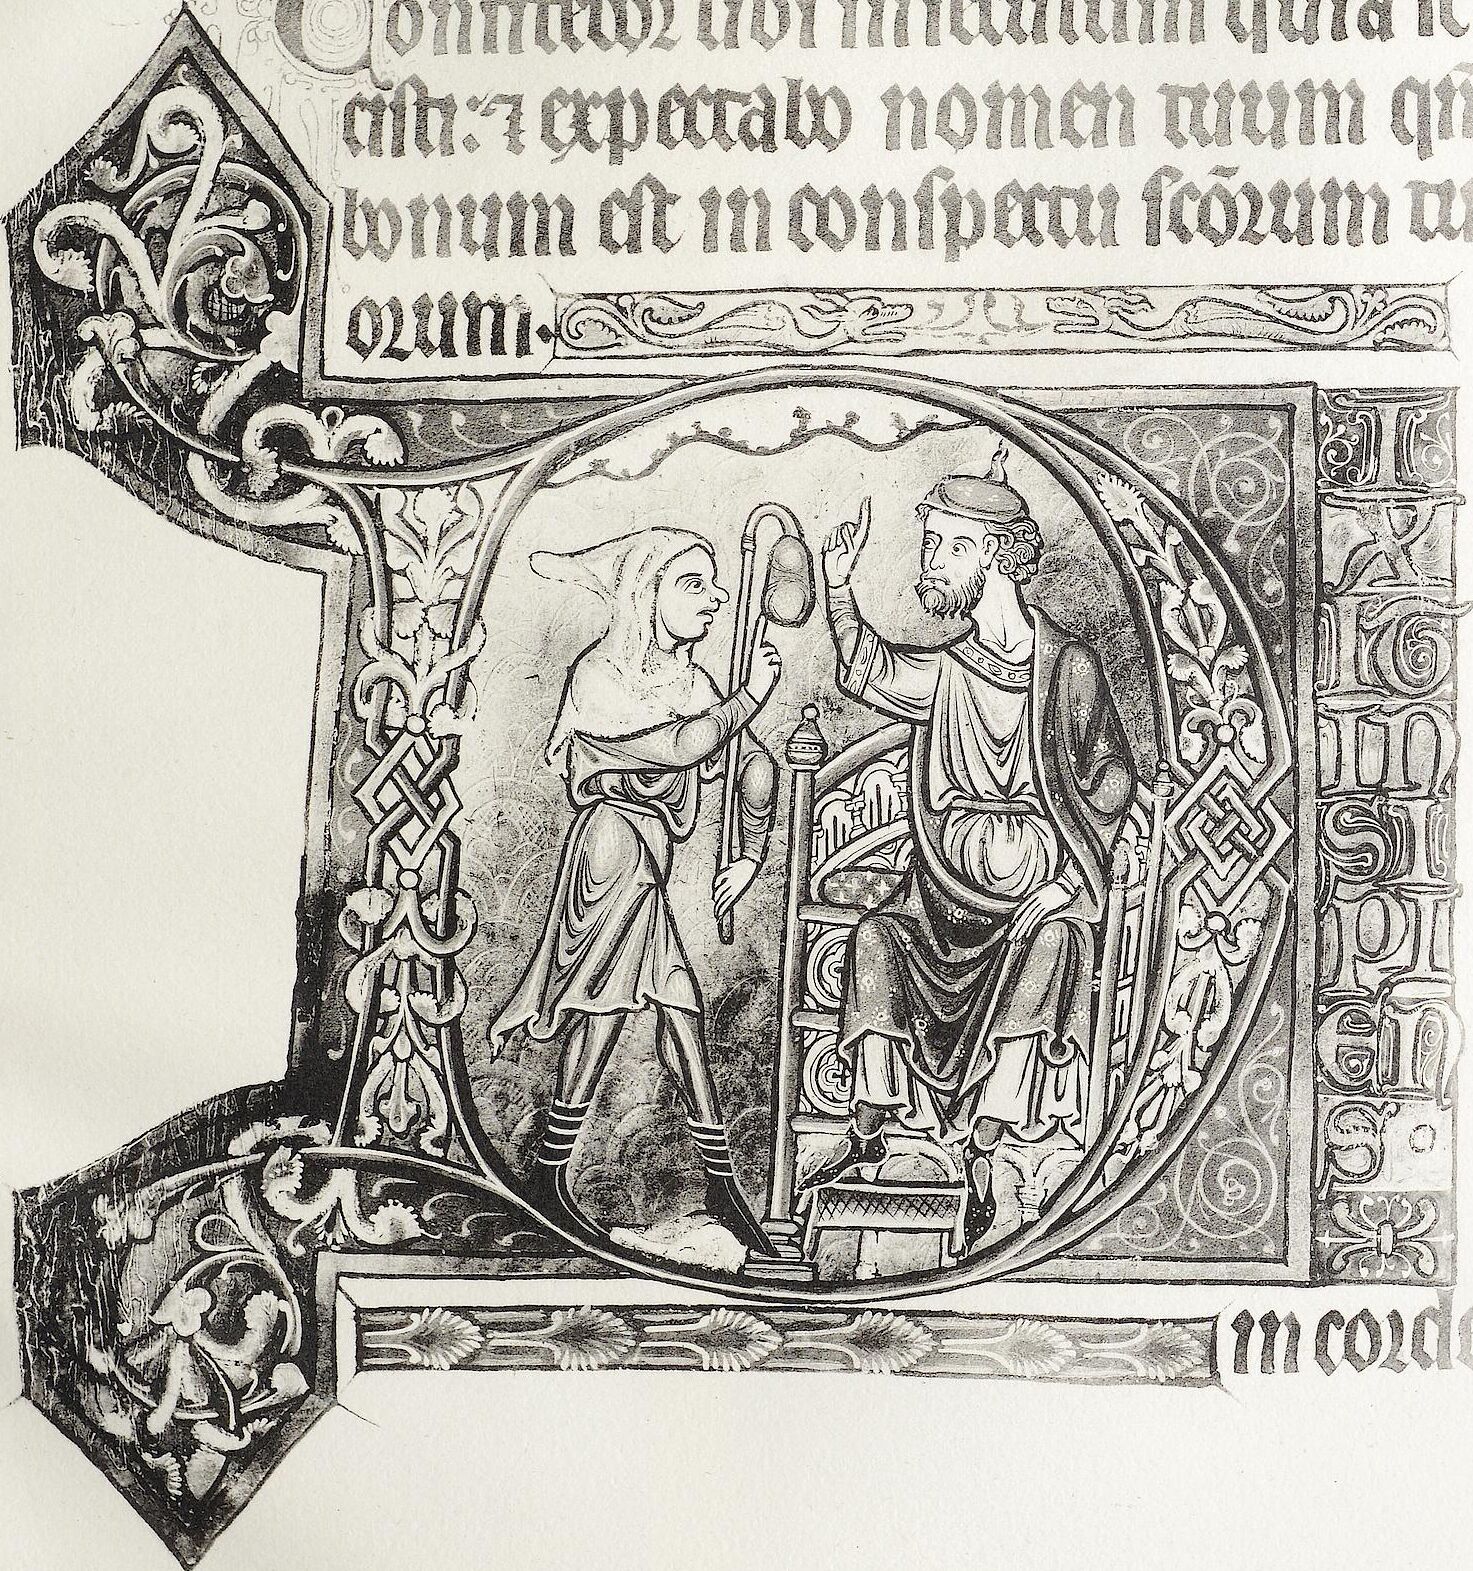 Confitebor tibi in seculum quia fe
cisti: ⁊ expectabo nomen tuum qm̄
bonum est in conspectu scōrum tu
orum.
D
I
X
IT
IN
SI
PI
EN
S.
in corde